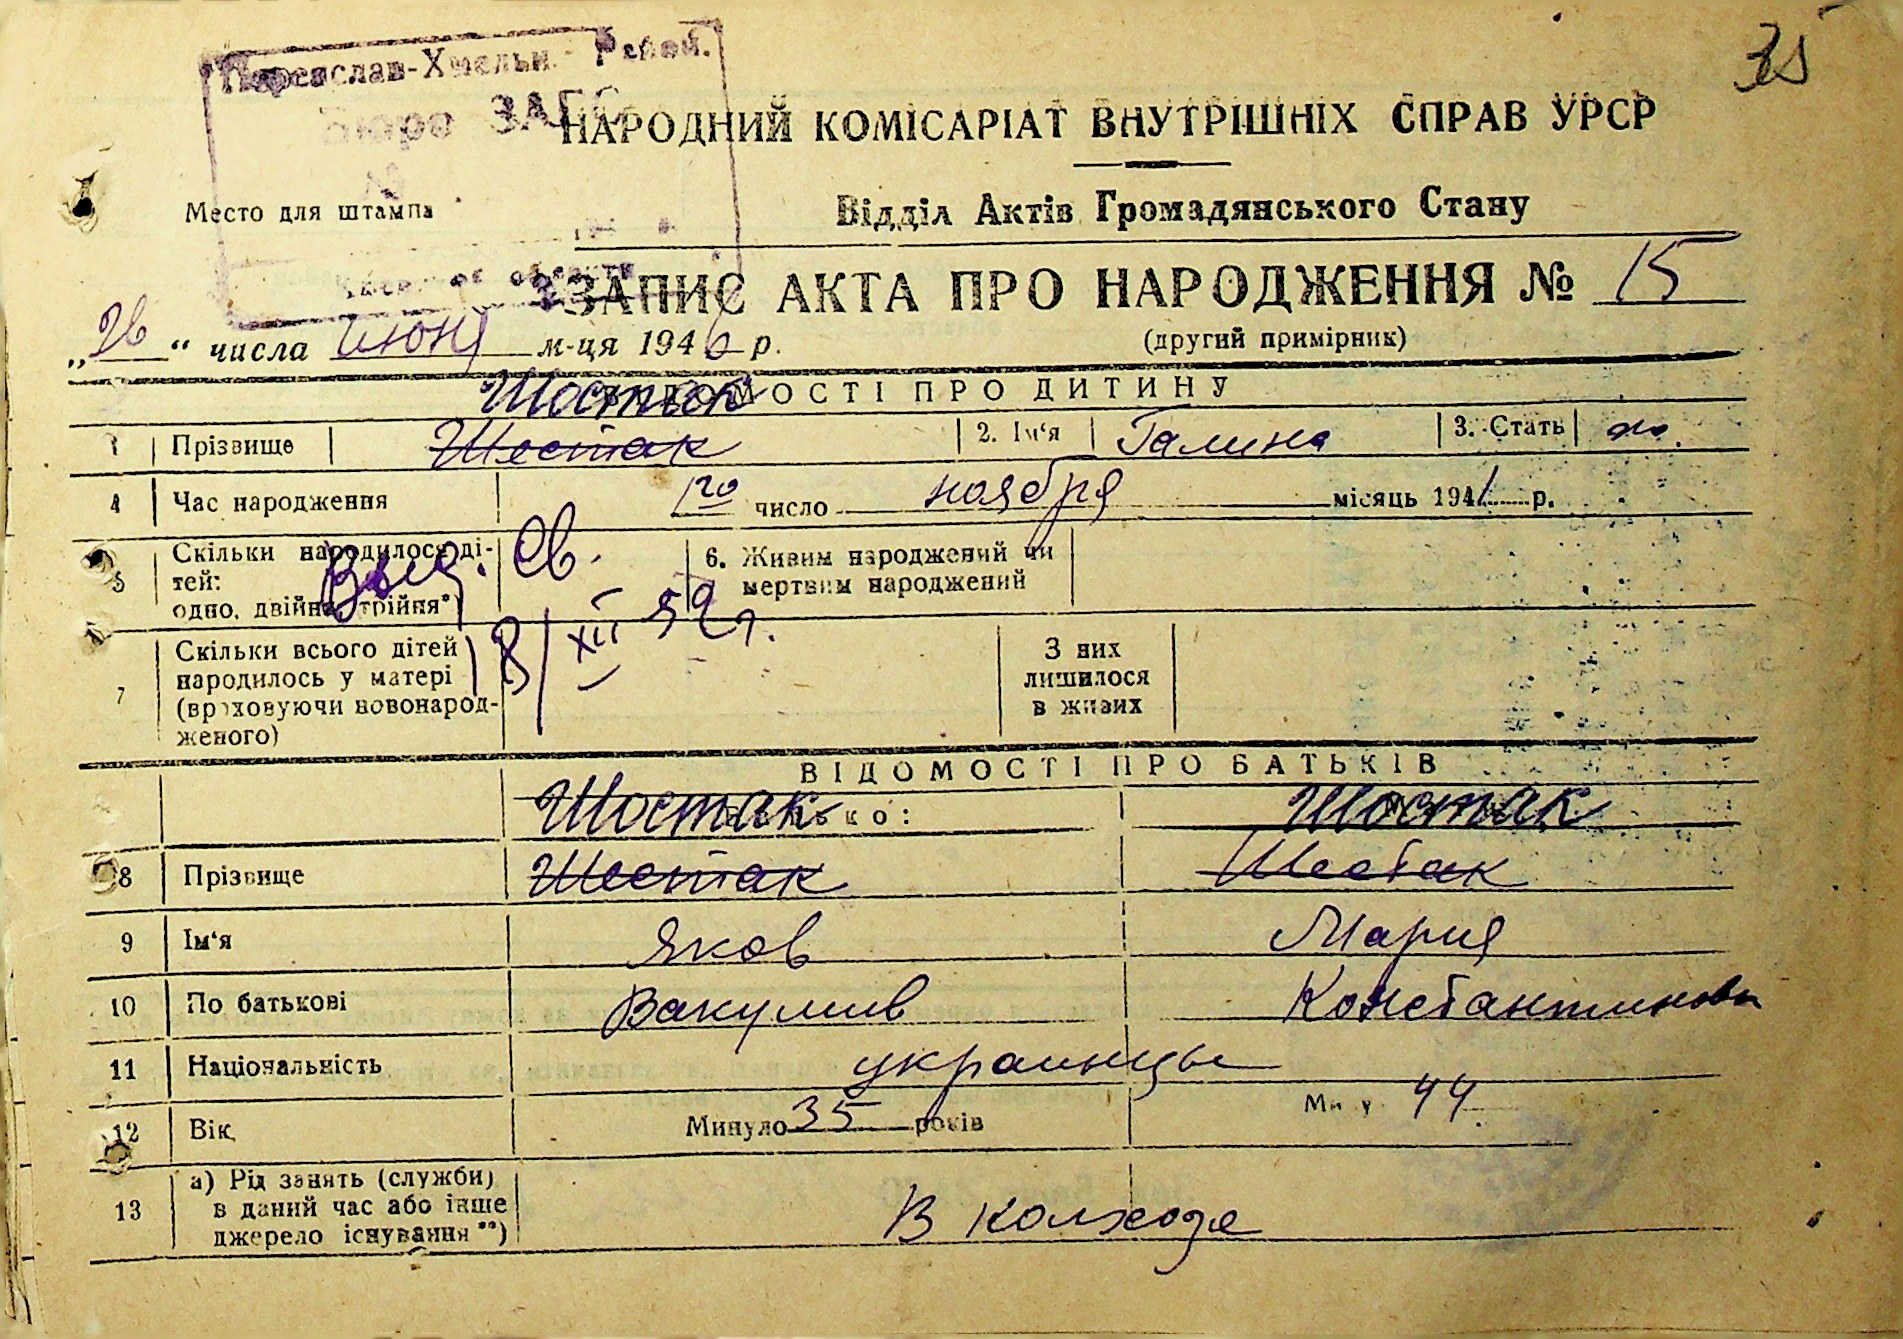 35
Переяслав-Хмельн. Район.
Бюро ЗАГС
НАРОДНИЙ КОМІСАРІАТ ВНУТРІШНІХ СПРАВ УРСР
Место для штампа
Відділ Актів Громадянського Стану
ЗАПИС АКТА ПРО НАРОДЖЕННЯ № 15
(другий примірник)
„26“ числа июня м-ця 1946 р.
ВІДОМОСТІ ПРО ДИТИНУ
Шостак
1 Прізвище Шестак 2. Ім'я Галина 3. Стать ж.
4 Час народження число ноября місяць 1941 р.
5 Скільки народилося ді-
тей:
одно, двійня, трійня*)
6. Живим народжений чи
мертвим народжений
Выд. Св.
18/XII 59 г.
7 Скільки всього дітей
народилось у матері
(враховуючи новонарод-
женого)
З них
лишилося
в живих
ВІДОМОСТІ ПРО БАТЬКІВ
Батько:
Шостак Шостак
8 Прізвище Шестак Шестак
9 Ім'я Яков Мария
10 По батькові Вакумив Константинова
11 Національність украинцы
12 Вік Минуло 35 років Мину 44
13 а) Рід занять (служби)
в даний час або інше
джерело існування**)
В колхозе